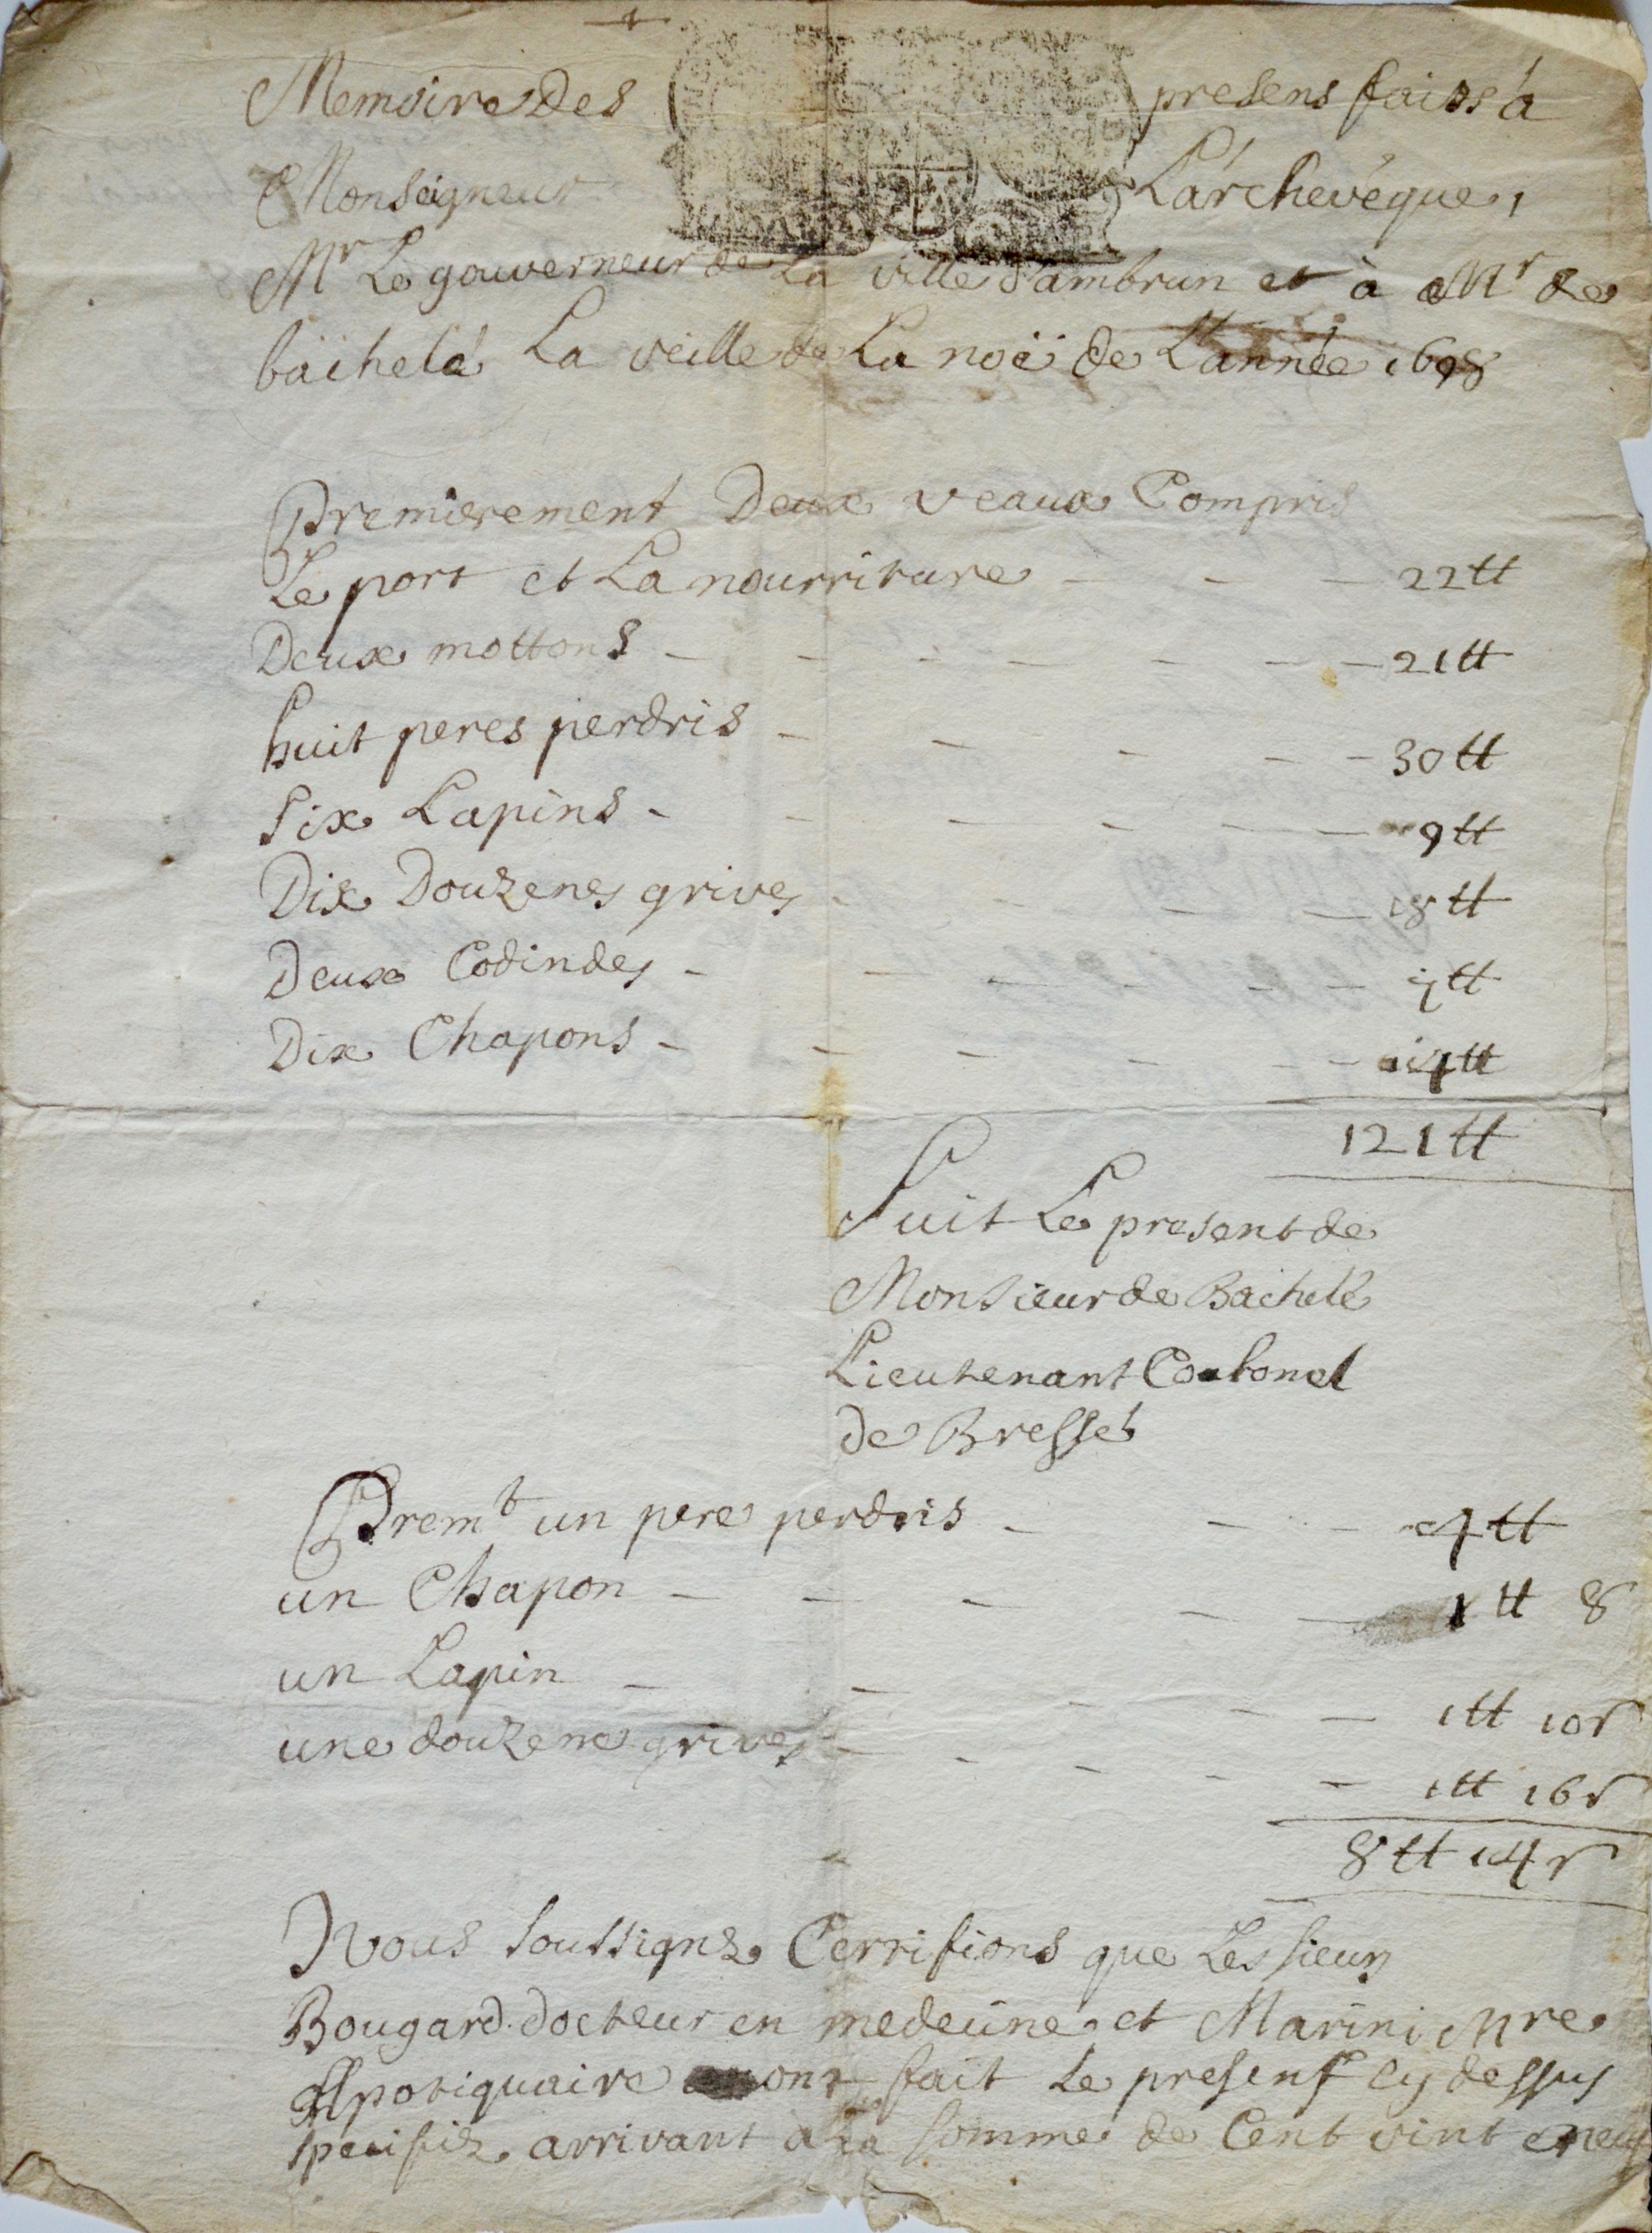 Memoire Des presens faits à
Monseigneur L'archevêque,
Mr Le gouverneur de La ville d'ambrun et à Mr de
bachelé La veille de La noé de L'année 1698
Premierement Deux veaux Compris
Le port et La nourriture - - - 22 tt
Deux mottons - - - - - - - 21 tt
huit peres perdris - - - - - 30 tt
Six Lapins - - - - - - 9 tt
Dix Douzenes grives - - - - 18 tt
Deux Codindes - - - - - - 7 tt
Dix Chapons - - - - - - 14 tt
121 tt
Suit Le present de
Monsieur de Bachelé
Lieutenant Coulonel
de Bresse
Premt un pere perdris - - - 4 tt
un Chapon - - - - - 1 tt 8
un Lapin - - - - - 1 tt 10 s
une douzene grives - - - - - 1 tt 16 s
8 tt 14 s
Nous soussignez Certifions que Les sieurs
Bougard docteur en medecine et Marini Mre
Apotiquaire ont fait le present cy dessus
specifiez arrivant a La somme de Cent vint et neuf